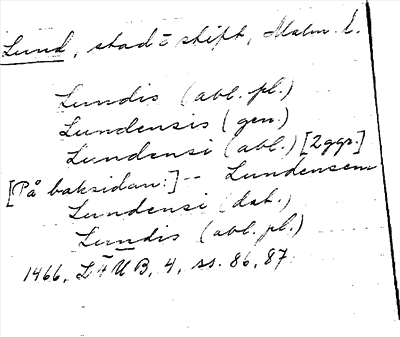 Lund, stad o stift, Malm. l.
Lundis (abl. pl.)
Lundensis (gen.)
Lundensi (abl.) [2 ggr.]
[På baksidan:] -- Lundensem
Lundensi (dat.)
Lundis (abl. pl.)
1466, LÄUB, 4, ss. 86, 87.